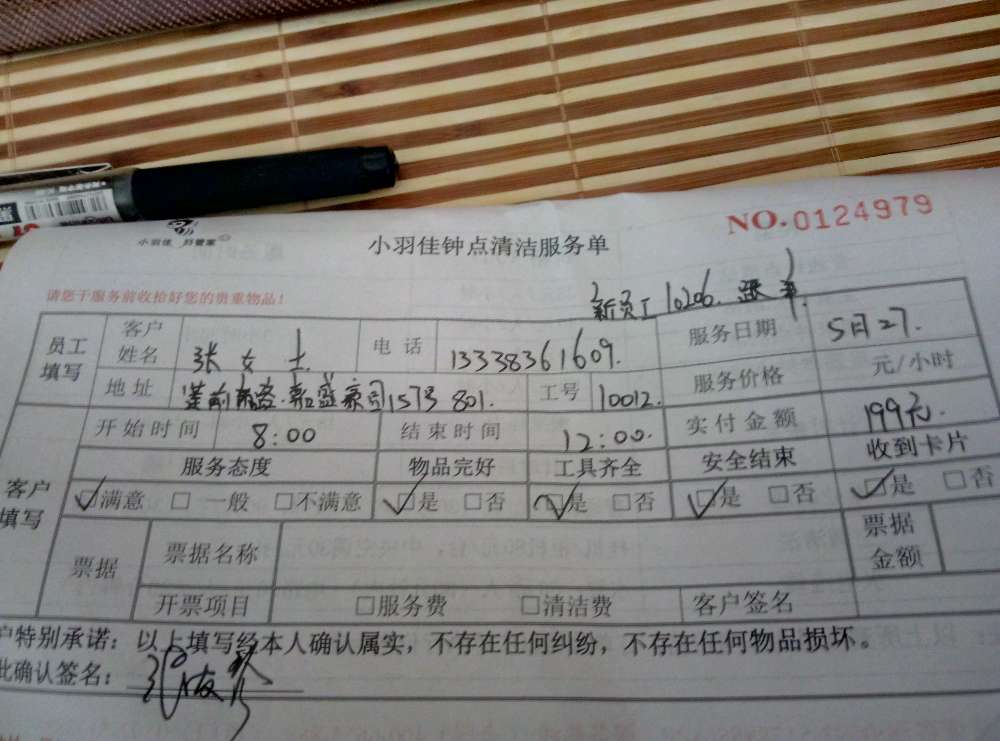 小羽佳 好管家
小羽佳钟点清洁服务单
NO.0124979
请您于服务前收拾好您的贵重物品!
新员工 10206.
员工填写 客户姓名 张女士 电话 13338361609. 服务日期 5月27.
地址 莲前 盛豪园157号801. 工号 10012. 服务价格 元/小时
客户填写 开始时间 8:00 结束时间 12:00. 实付金额 199元.
服务态度 物品完好 工具齐全 安全结束 收到卡片
☑满意 □一般 □不满意 ☑是 □否 ☑是 □否 ☑是 □否 ☑是 □否
票据 票据名称 票据金额
开票项目 □服务费 □清洁费 客户签名
户特别承诺：以上填写经本人确认属实，不存在任何纠纷，不存在任何物品损坏。
此确认签名：